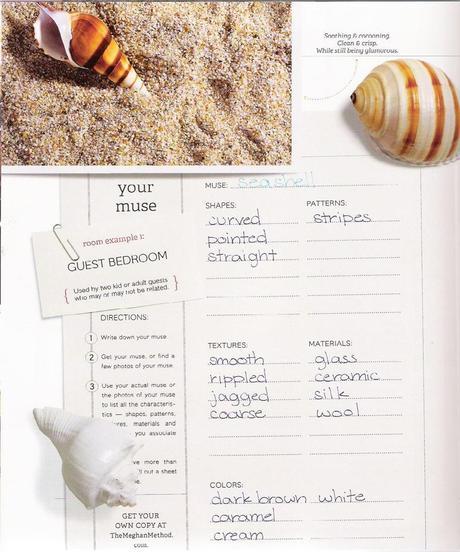 Soothing & cocooning.
Clean & crisp.
While still being glamorous.
your
muse
MUSE: seashell
SHAPES:
curved
pointed
straight
PATTERNS:
stripes
room example 1:
GUEST BEDROOM
{ Used by two kid or adult guests
who may or may not be related. }
DIRECTIONS:
1 Write down your muse.
2 Get your muse, or find a
few photos of your muse.
3 Use your actual muse or
the photos of your muse
to list all the characteris-
tics — shapes, patterns,
materials and
you associate
more than
out a sheet
TEXTURES:
smooth
rippled
jagged
coarse
MATERIALS:
glass
ceramic
silk
wool
COLORS:
dark brown white
caramel
cream
GET YOUR
OWN COPY AT
TheMeghanMethod.
com.